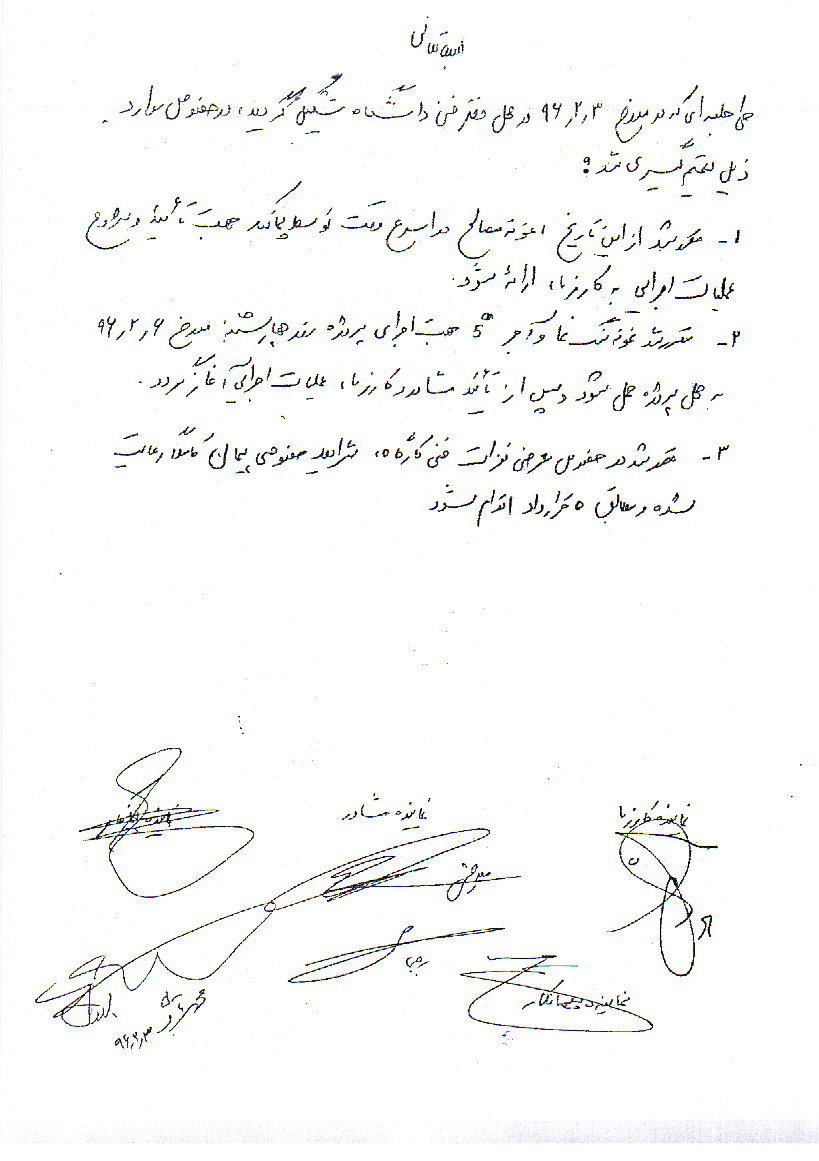 بسمه تعالی
طی جلسه ای که در مورخ ۹۶٫۲٫۳ در محل دفتر فنی دانشگاه تشکیل گردید، در خصوص موارد
ذیل تصمیم گیری شد:
۱- مقرر شد از این تاریخ نمونه مصالح در اسرع وقت توسط پیمانکار جهت تأیید و شروع
عملیات اجرایی به کارفرما، ارائه شود.
۲- مقرر شد نمونه سنگ نما و آجر 5 جهت اجرای پروژه روز چهارشنبه مورخ ۹۶٫۲٫۶
به محل پروژه حمل شود و پس از تأیید مشاور و کارفرما، عملیات اجرایی آغاز گردد.
۳- مقرر شد در خصوص معرفی نفرات فنی کارگاه، شرایط خصوصی پیمان کاملاً رعایت
شده و مطابق قرارداد اقدام شود
نماینده کارفرما
نماینده مشاور
رجب
نماینده پیمانکار
۹۶٫۲٫۳